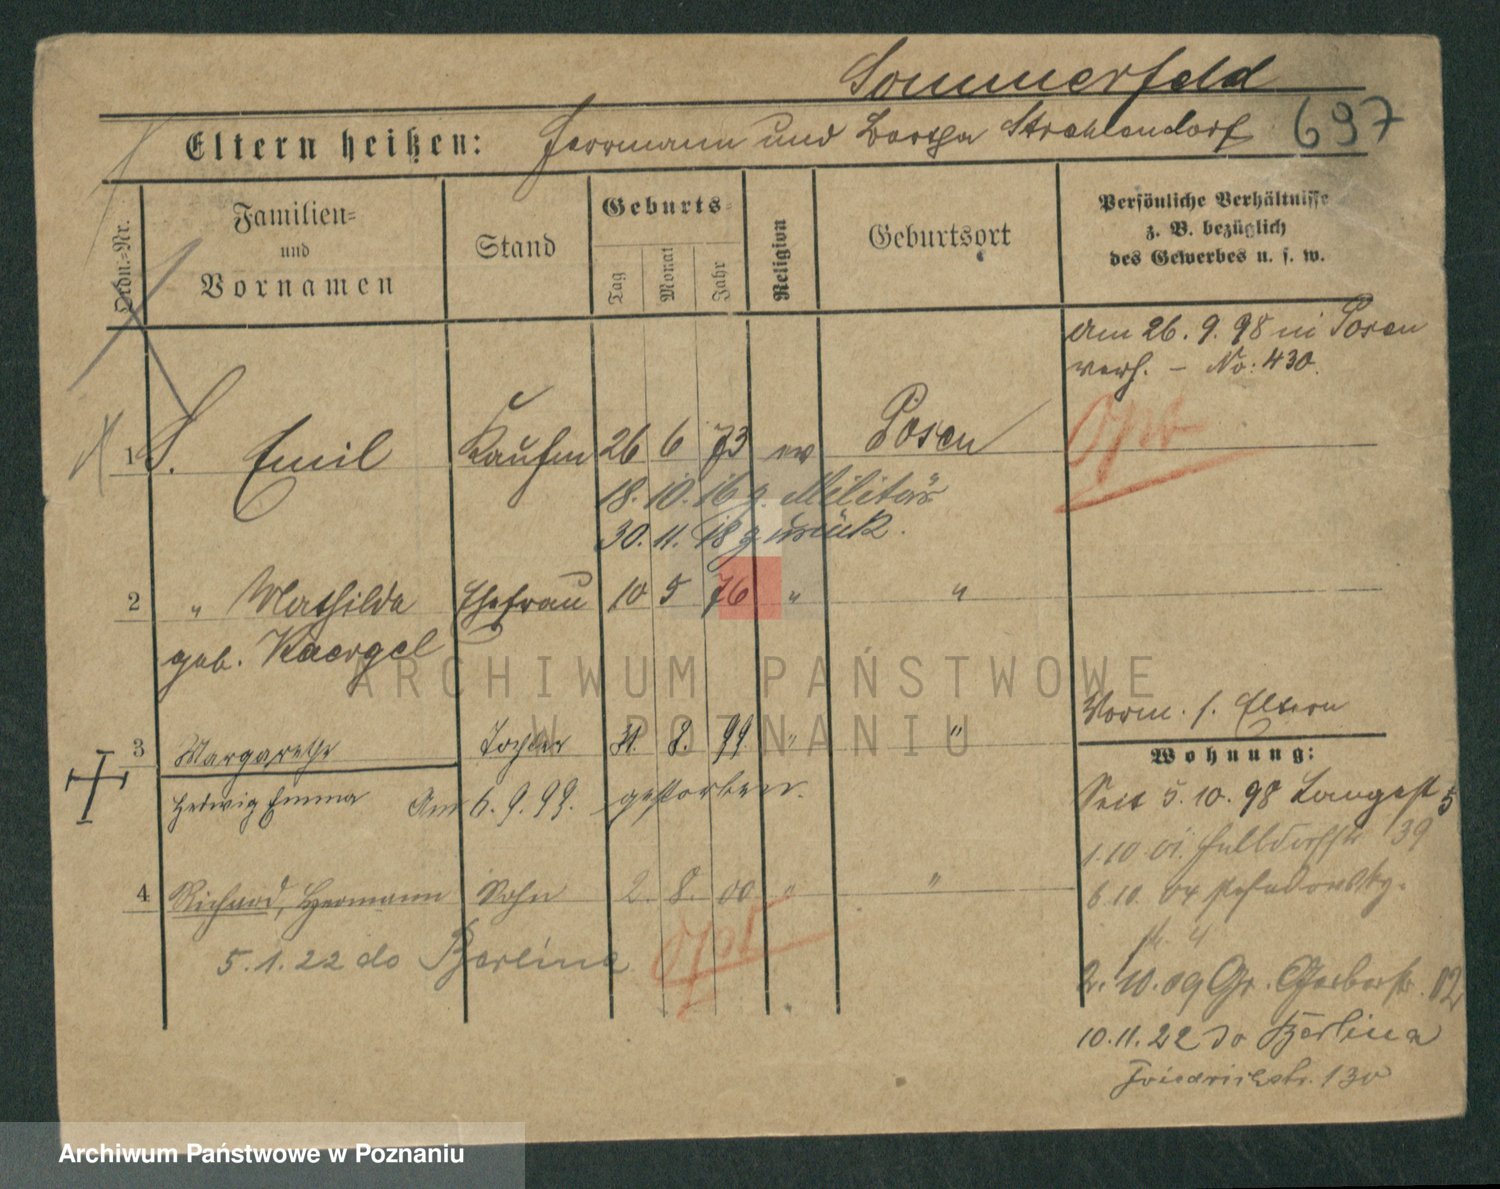 Sommerfeld
Eltern heißen: Herrmann und Bertha Strahlendorf 697
Ordn.-Nr.
Familien-
und
Vornamen
Stand
Geburts-
Tag
Monat
Jahr
Religion
Geburtsort
Persönliche Verhältnisse
z. B. bezüglich
des Gewerbes u. s. w.
Am 26. 9. 98 in Posen
verh. – No: 430.
1 S. Emil Kaufm 26 6 73 ev Posen
Opt
18. 10. 16 z. Militär
30. 11. 18 zurück.
2 " Mathilde Ehefrau 10 5 76 " "
geb. Kaergel
ARCHIWUM PAŃSTWOWE
W POZNANIU
Vorm. s. Eltern
3 Margarethe Tochter 31. 8. 99 " "
Hedwig Emma Am 6. 9. 99. gestorben.
Wohnung:
Seit 5. 10. 98 Langest 5
1. 10. 01. 39
4 Richard, Hermann Sohn 2. 8. 00 " "
6. 10. 04
str. 4
5. 1. 22 do Berlina Opt
2. 10. 09 Gr. Gerberstr. 12
10. 11. 22 do Berlina
Friedrichstr. 130
Archiwum Państwowe w Poznaniu